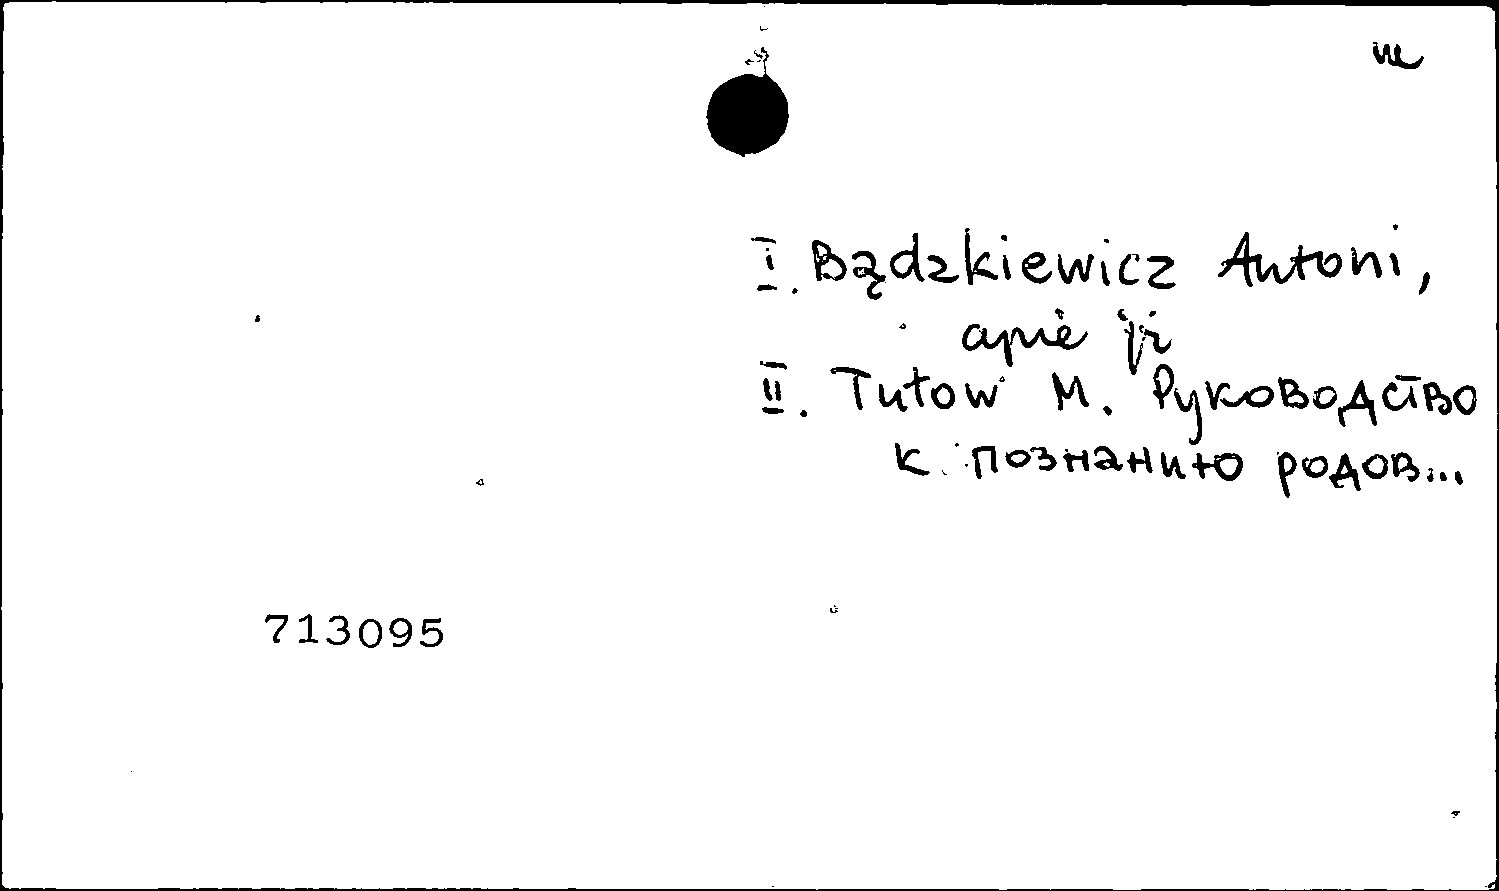 I. Bądzkiewicz Antoni,
apie jį
II. Tutow M. Руководство
к познанию родов...
713095